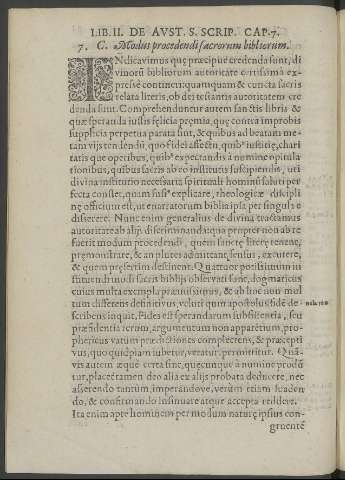 LIB. II. DE AVST. S. SCRIP. CAP. 7.
7. C. Modus procedendi sacrorum bibliorum.
INdicavimus quæ præcipuè credenda sunt, di
vinorũ bibliorum autoritate certissima ex-
pressè contineri: quamquam & cuncta sacris
relata literis, ob dei testantis autoritatem cre
denda sunt. Comprehenduntur autem sanctis libris &
quæ speranda iustis felicia præmia, quę contrà improbis
supplicia perpetua parata sint, & quibus ad beatam me-
tam vijs tendendũ, quo fidei affectu, quibꝰ iustitię, chari
tatis que operibus, quibꝰ expectandis à numine opitula
tionibus, quibus sacris ab eo institutis suscipiendis, uti
divina institutio necessaria spirituali hominũ saluti per
fecta constet, quam explicare, theologicæ discipli
nę officium est, ut enarratorum biblia ipsa per singula e
disserere. Nunc enim generalius de divina tractamus
autoritate ab alijs discriminanda: qua propter non ab re
fuerit modum procedendi, quem sanctę literę tenent,
præmonstrare, & an plures admittant sensus, excutere,
& quem pręsertim destinent. Quatuor potissimùm in
stituendi modi sacri biblijs observati sunt, dogmaticus
cuius multa exempla præmisimus, & ab hoc non mul
tum differens definitivus, velut quùm apostolus fidē de-
scribens inquit, Fides est sperandarum substantia, seu
præsidentia rerum, argumentum non apparētium, pro-
pheticus vatum prædictiones complectens, & præcepti
vus, quo quidpiam iubetur, vetatur, permittitur. Quã-
vis autem æquè certa sint, quęcumque a numine produ
tur, placet tamen deo alia ex alijs probata deducere, nec
asserendo tantum, imperandove, verùm etiam suaden
do, & confirmando insinuare atque accepta reddere.
Ita enim apte hominem per modum naturę ipsius con-
gruentē